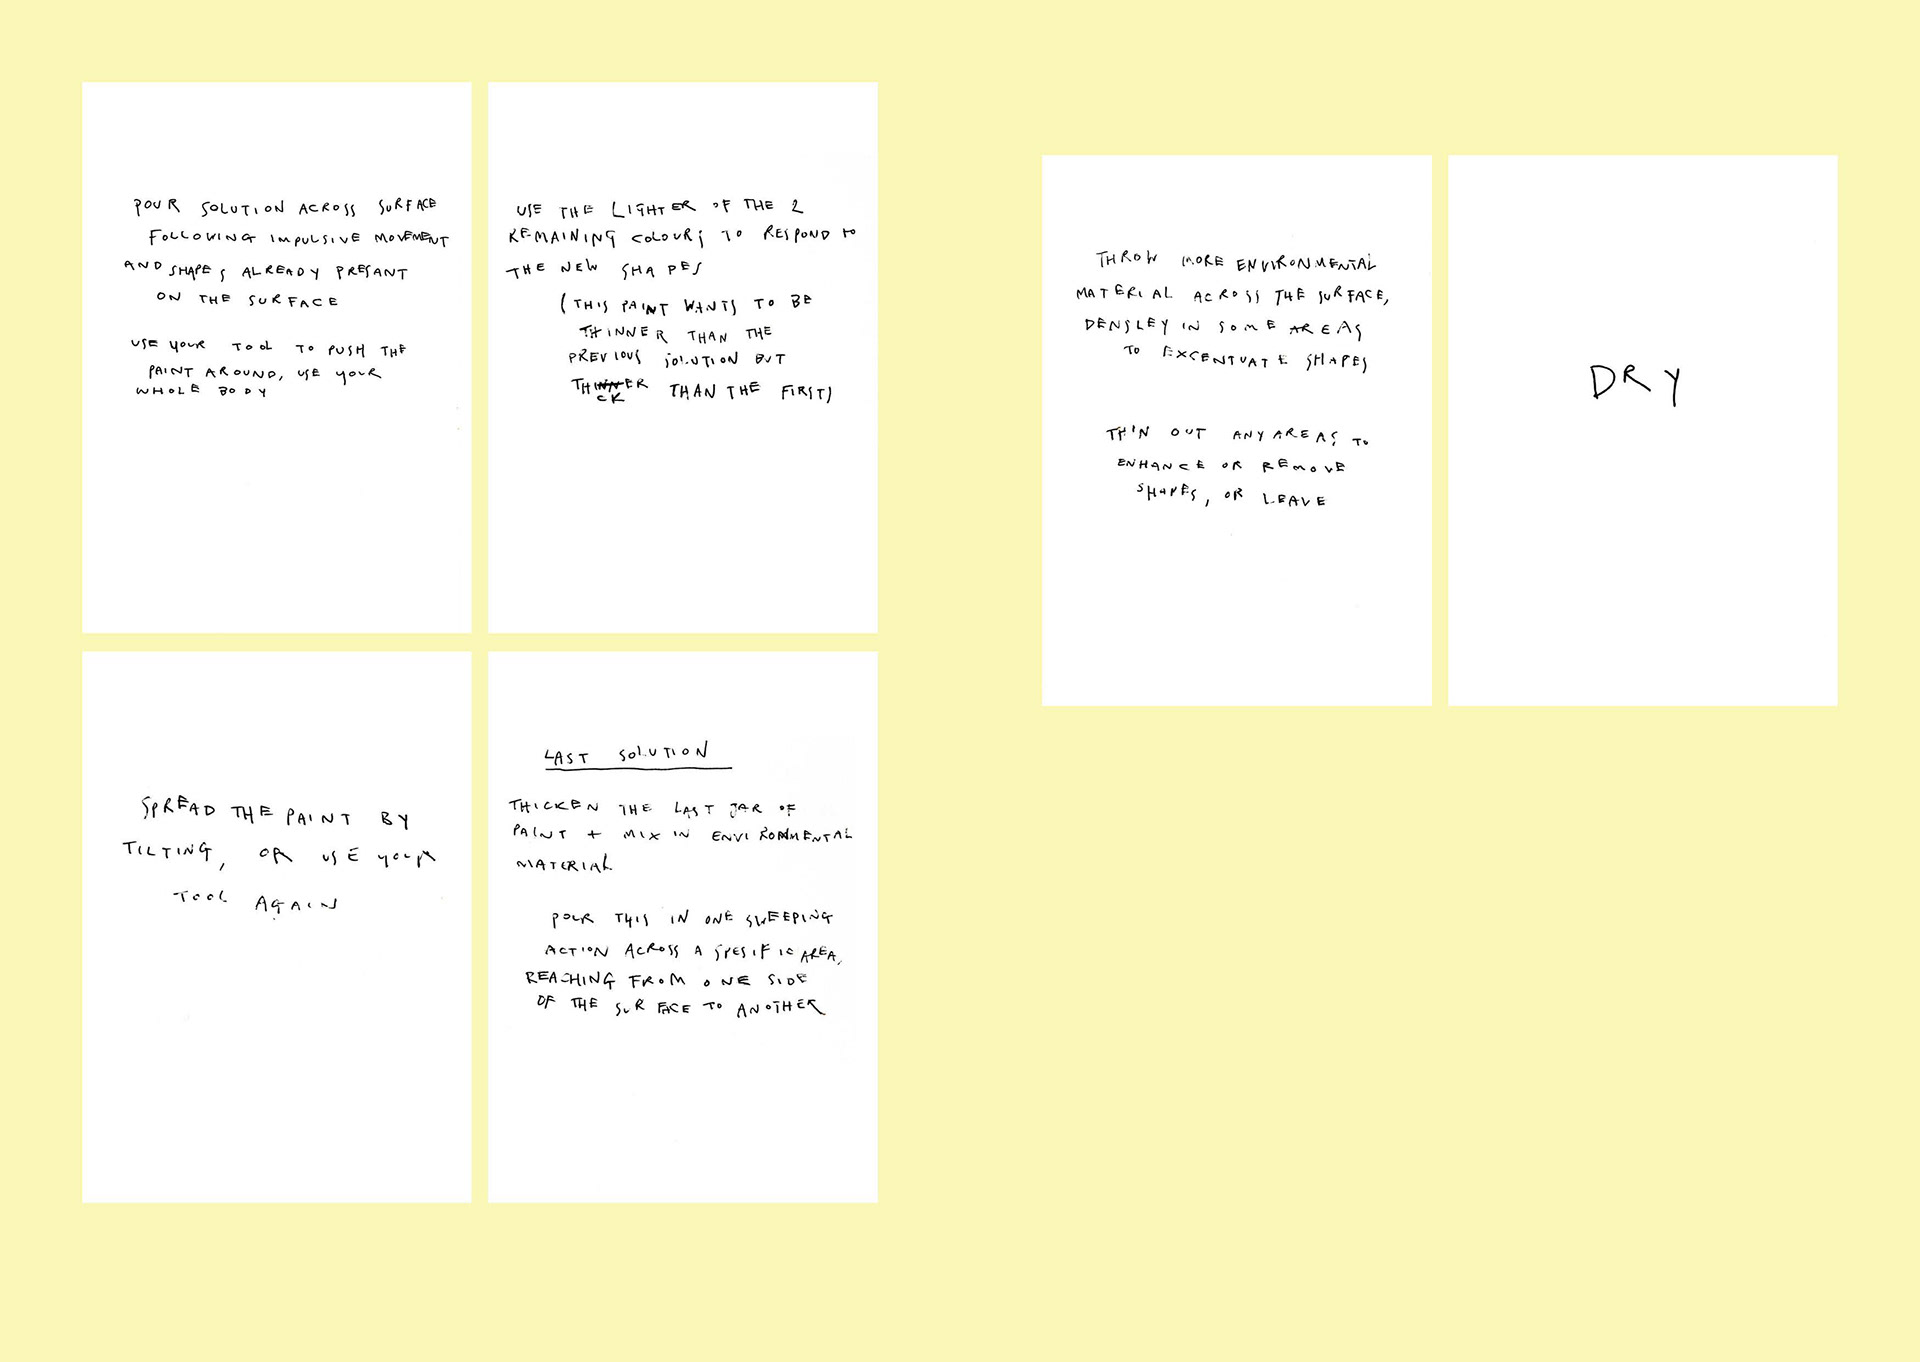 POUR SOLUTION ACROSS SURFACE
FOLLOWING IMPULSIVE MOVEMENT
AND SHAPES ALREADY PRESANT
ON THE SURFACE
USE YOUR TOOL TO PUSH THE
PAINT AROUND, USE YOUR
WHOLE BODY
USE THE LIGHTER OF THE 2
REMAINING COLOURS TO RESPOND TO
THE NEW SHAPES
(THIS PAINT WANTS TO BE
THINNER THAN THE
PREVIOUS SOLUTION BUT
THICKER THAN THE FIRST)
SPREAD THE PAINT BY
TILTING, OR USE YOUR
TOOL AGAIN
LAST SOLUTION
THICKEN THE LAST JAR OF
PAINT + MIX IN ENVIRONMENTAL
MATERIAL
POUR THIS IN ONE SWEEPING
ACTION ACROSS A SPESIFIC AREA,
REACHING FROM ONE SIDE
OF THE SURFACE TO ANOTHER
THROW MORE ENVIRONMENTAL
MATERIAL ACROSS THE SURFACE,
DENSLEY IN SOME AREAS
TO EXCENTUATE SHAPES
THIN OUT ANY AREAS TO
ENHANCE OR REMOVE
SHAPES, OR LEAVE
DRY